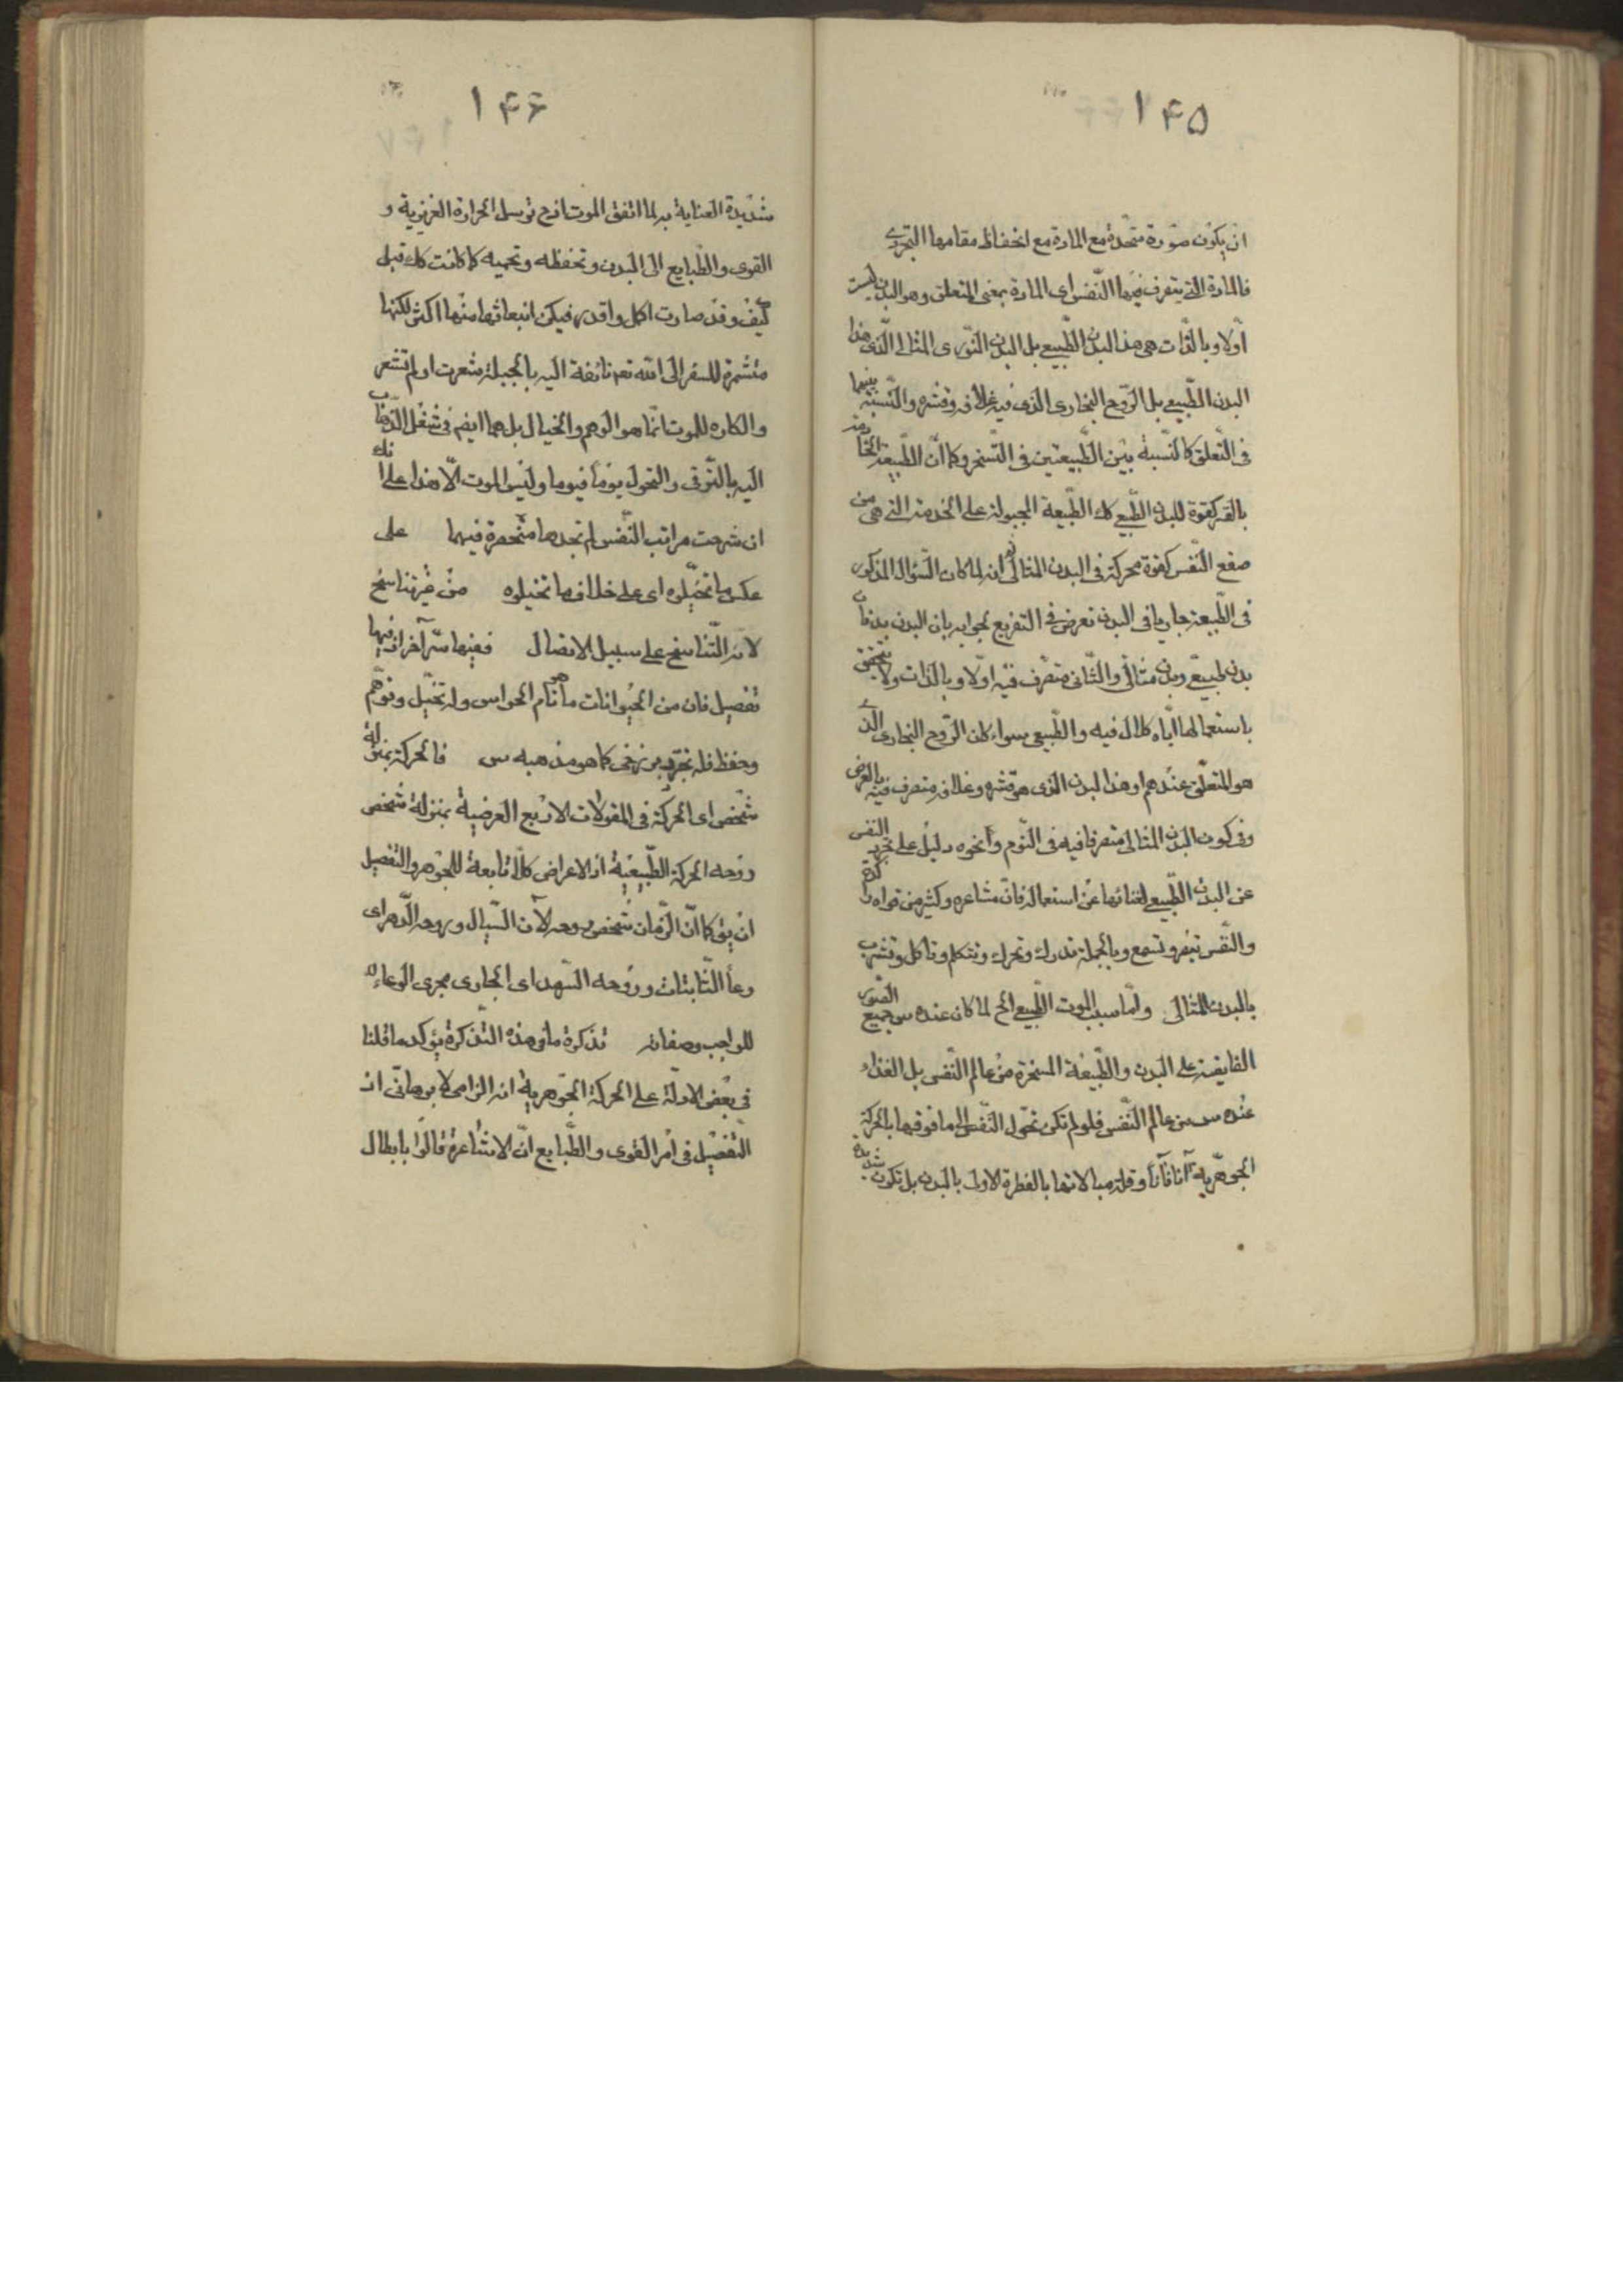 ١۴۵
ان يكون صورة متحدة مع المادة مع انحفاظ مقامها التجردى
فالمادة التى يتصرف فيها النفس اى المادة بمعنى المتعلق وهو البدن ليست
اولا وبالذات هى هذا البدن الطبيعى بل البدن النورى المثالى الذى هذا
البدن الطبيعى بل الروح البخارى الذى فيه غلافه وقشره والنسبة بينهما
فى التعلق كالنسبة بين الطبيعتين فى التسخر وكما ان الطبيعة الخادمة
بالقسر كقوة للبدن الطبيعى كك الطبيعة المجبولة على الخدمة التى هى من
صقع النفس كقوة محركة فى البدن المثالى ثم انه لما كان السؤال المذكور
فى الطبيعة جاريا فى البدن تعرض فى التفريع لجوابه بان البدن بدنان
بدن طبيعى وبدن مثالى والثانى متصرف فيه اولا وبالذات ولا يتحقق
باستعمالها اياه كلال فيه والطبيعى سواء كان الروح البخارى الذى
هو المتعلق عندهم او هذا البدن الذى هو قشره وغلافه متصرف فيه بالعرض
وفى كون البدن المثالى متصرفا فيه فى النوم ونحوه دليل على تجرد النفس
عن البدن الطبيعى لغنائها عن استعماله فان مشاعره وكثير من قواه راكدة
والنفس تبصر وتسمع وبالجملة تدرك وتحرك وتتكلم وتاكل وتشرب
بالبدن المثالى واما سبب الموت الطبيعى الخ لما كان عنده س جميع القوى
الفايضة على البدن والطبيعة المسخرة من عالم النفس بل الغذاء
عنده س من عالم النفس فلو لم تكن تحول النفس الى ما فوقها بالحركة
الجوهرية آنا فآنا وقلة مبالاتها بالفطرة الاولى بالبدن بل تكون شديدة
١۴۶
شديدة العناية به لما اتفق الموت اذ ح توسل الحرارة الغريزية و
القوى والطبايع الى البدن وتحفظه وتحميه كما كانت كك قبل
كيف وقد صارت اكمل واقدر فيكن انبعاثها منها اكثر لكنها
متشمرة للسفر الى الله تعه تائقة اليه بالجبلة شعرت او لم تشعر
والكاره للموت انما هو الوهم والخيال بل هما ايضا فى شغل الذهاب
اليه بالترقى والتحول يوما فيوما وليس الموت الا هذا على انك
ان شرحت مراتب النفس لم تجدها منحصرة فيهما على
عكس ما تخيلوه اى على خلاف ما تخيلوه من غير تناسخ
لانه التناسخ على سبيل الاتصال ففيها سر آخر اذ فيها
تفصيل فان من الحيوانات ما هو تام الحواس وله تخيل وتوهم
وحفظ فله تجرد برزخى كما هو مذهبه س فالحركة بمنزلة
شخص اى الحركة فى المقولات الاربع العرضية بمنزلة شخص
روحه الحركة الطبيعية اذ الاعراض كلا تابعة للجوهر والتفصيل
ان يق كما ان الزمان شخص روحه الآن السيال وروحه الدهر اى
وعاء الثابتات وروحه السرمد اى الجارى مجرى الوعاء
للواجب وصفاته تذكرة ما فى هذه التذكرة يؤكد ما قلنا
فى بعض الادلة على الحركة الجوهرية انه الزامى لا برهانى اذ
التفصيل فى امر القوى والطبايع ان الاشاعرة قالوا بابطال